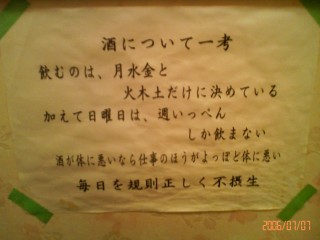 酒について一考
飲むのは、月水金と
火木土だけに決めている
加えて日曜日は、週いっぺん
しか飲まない
酒が体に悪いなら仕事のほうがよっぽど体に悪い
毎日を規則正しく不摂生
2006/07/07